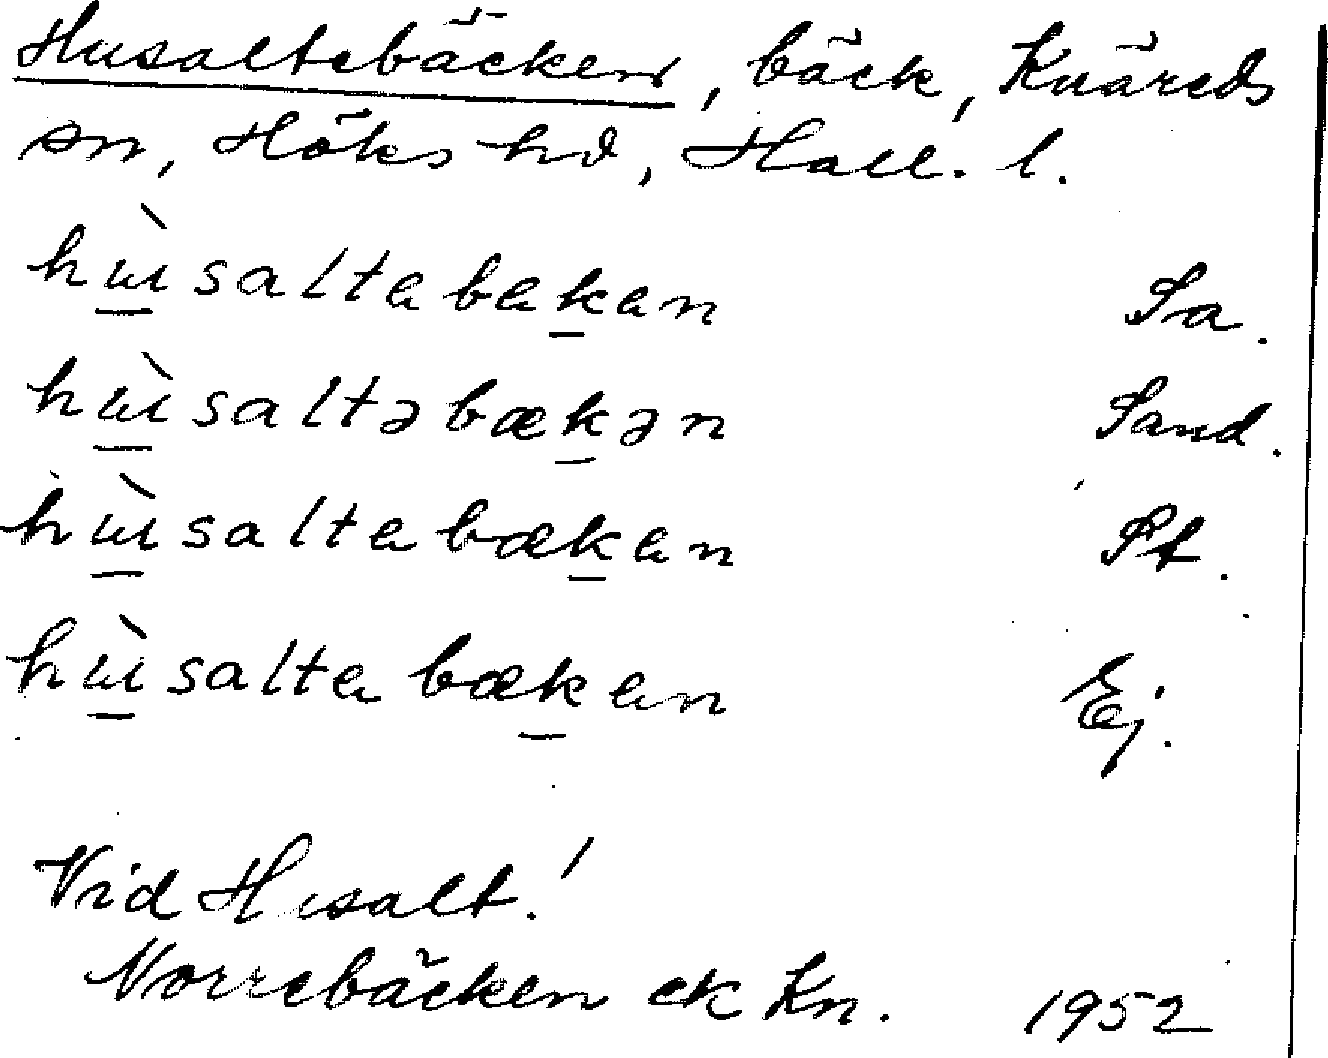 Husaltebäcken, bäck, Knäreds
sn, Höks hd, Hall. l.
hùsaltabakan Sa.
hùsaltəbækən Sand.
hùsaltabækan St.
hùsaltabækan Ej.
Vid Husalt.
Norrebäcken ek Kn. 1952